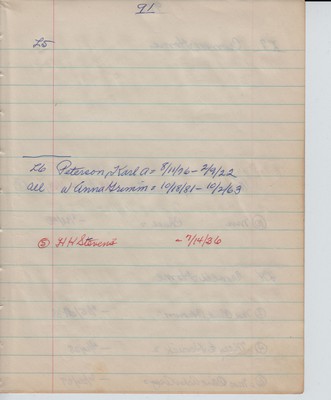 91
L5
L6 Peterson, Karl A = 8/11/76 - 2/9/22
all w/ Anna Grimm = 10/18/81 - 10/2/63
⑤ H H Stevens - 7/14/36